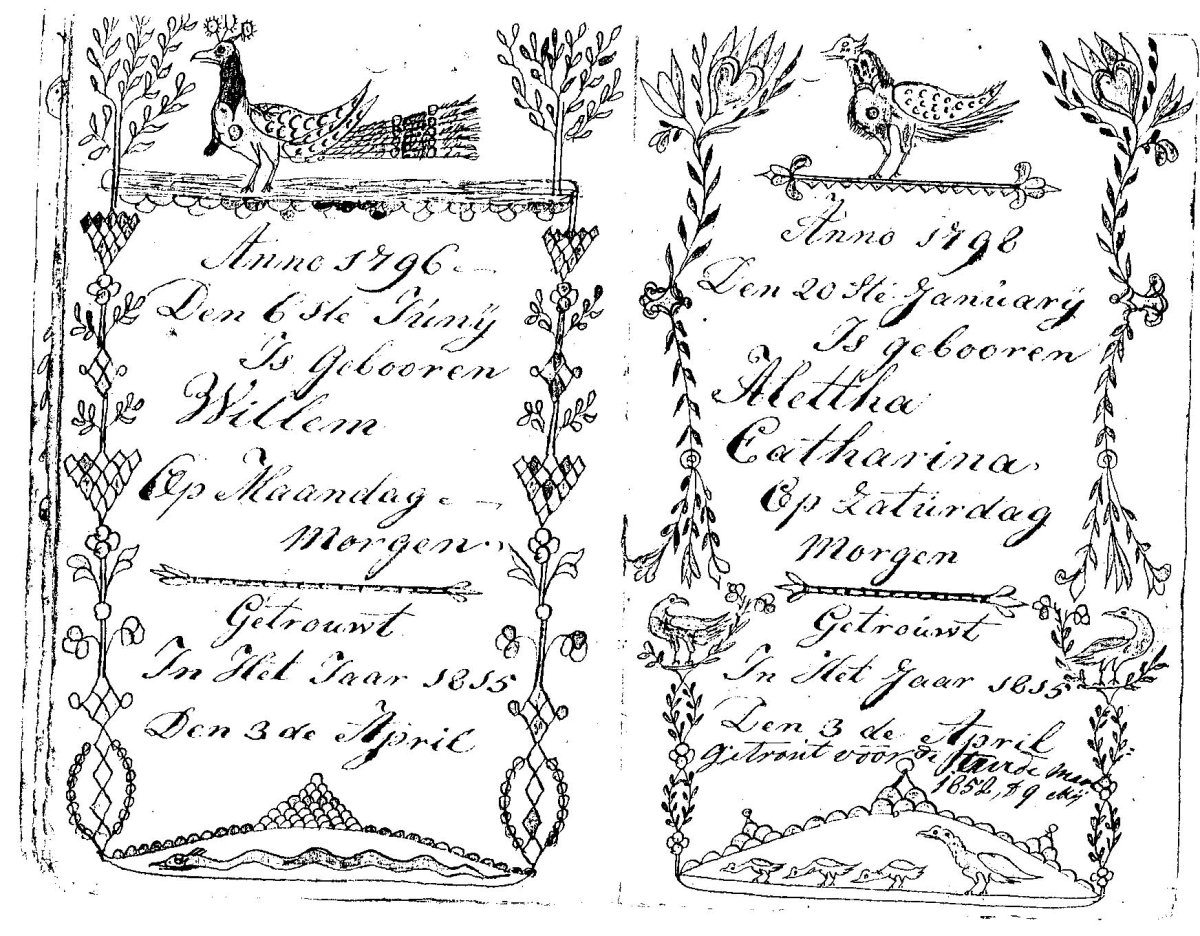 Anno 1796
Den 6 ste Junÿ
Is Gebooren
Willem
Op Maandag
Morgen
Getrouwt
In Het Jaar 1815
Den 3 de April
Anno 1798
Den 20 Ste Januarÿ
Is gebooren
Alettha
Catharina
Op Zaturdag
Morgen
Getrouwt
In Het Jaar 1815
Den 3 de April
getrout voor de maal
1852,